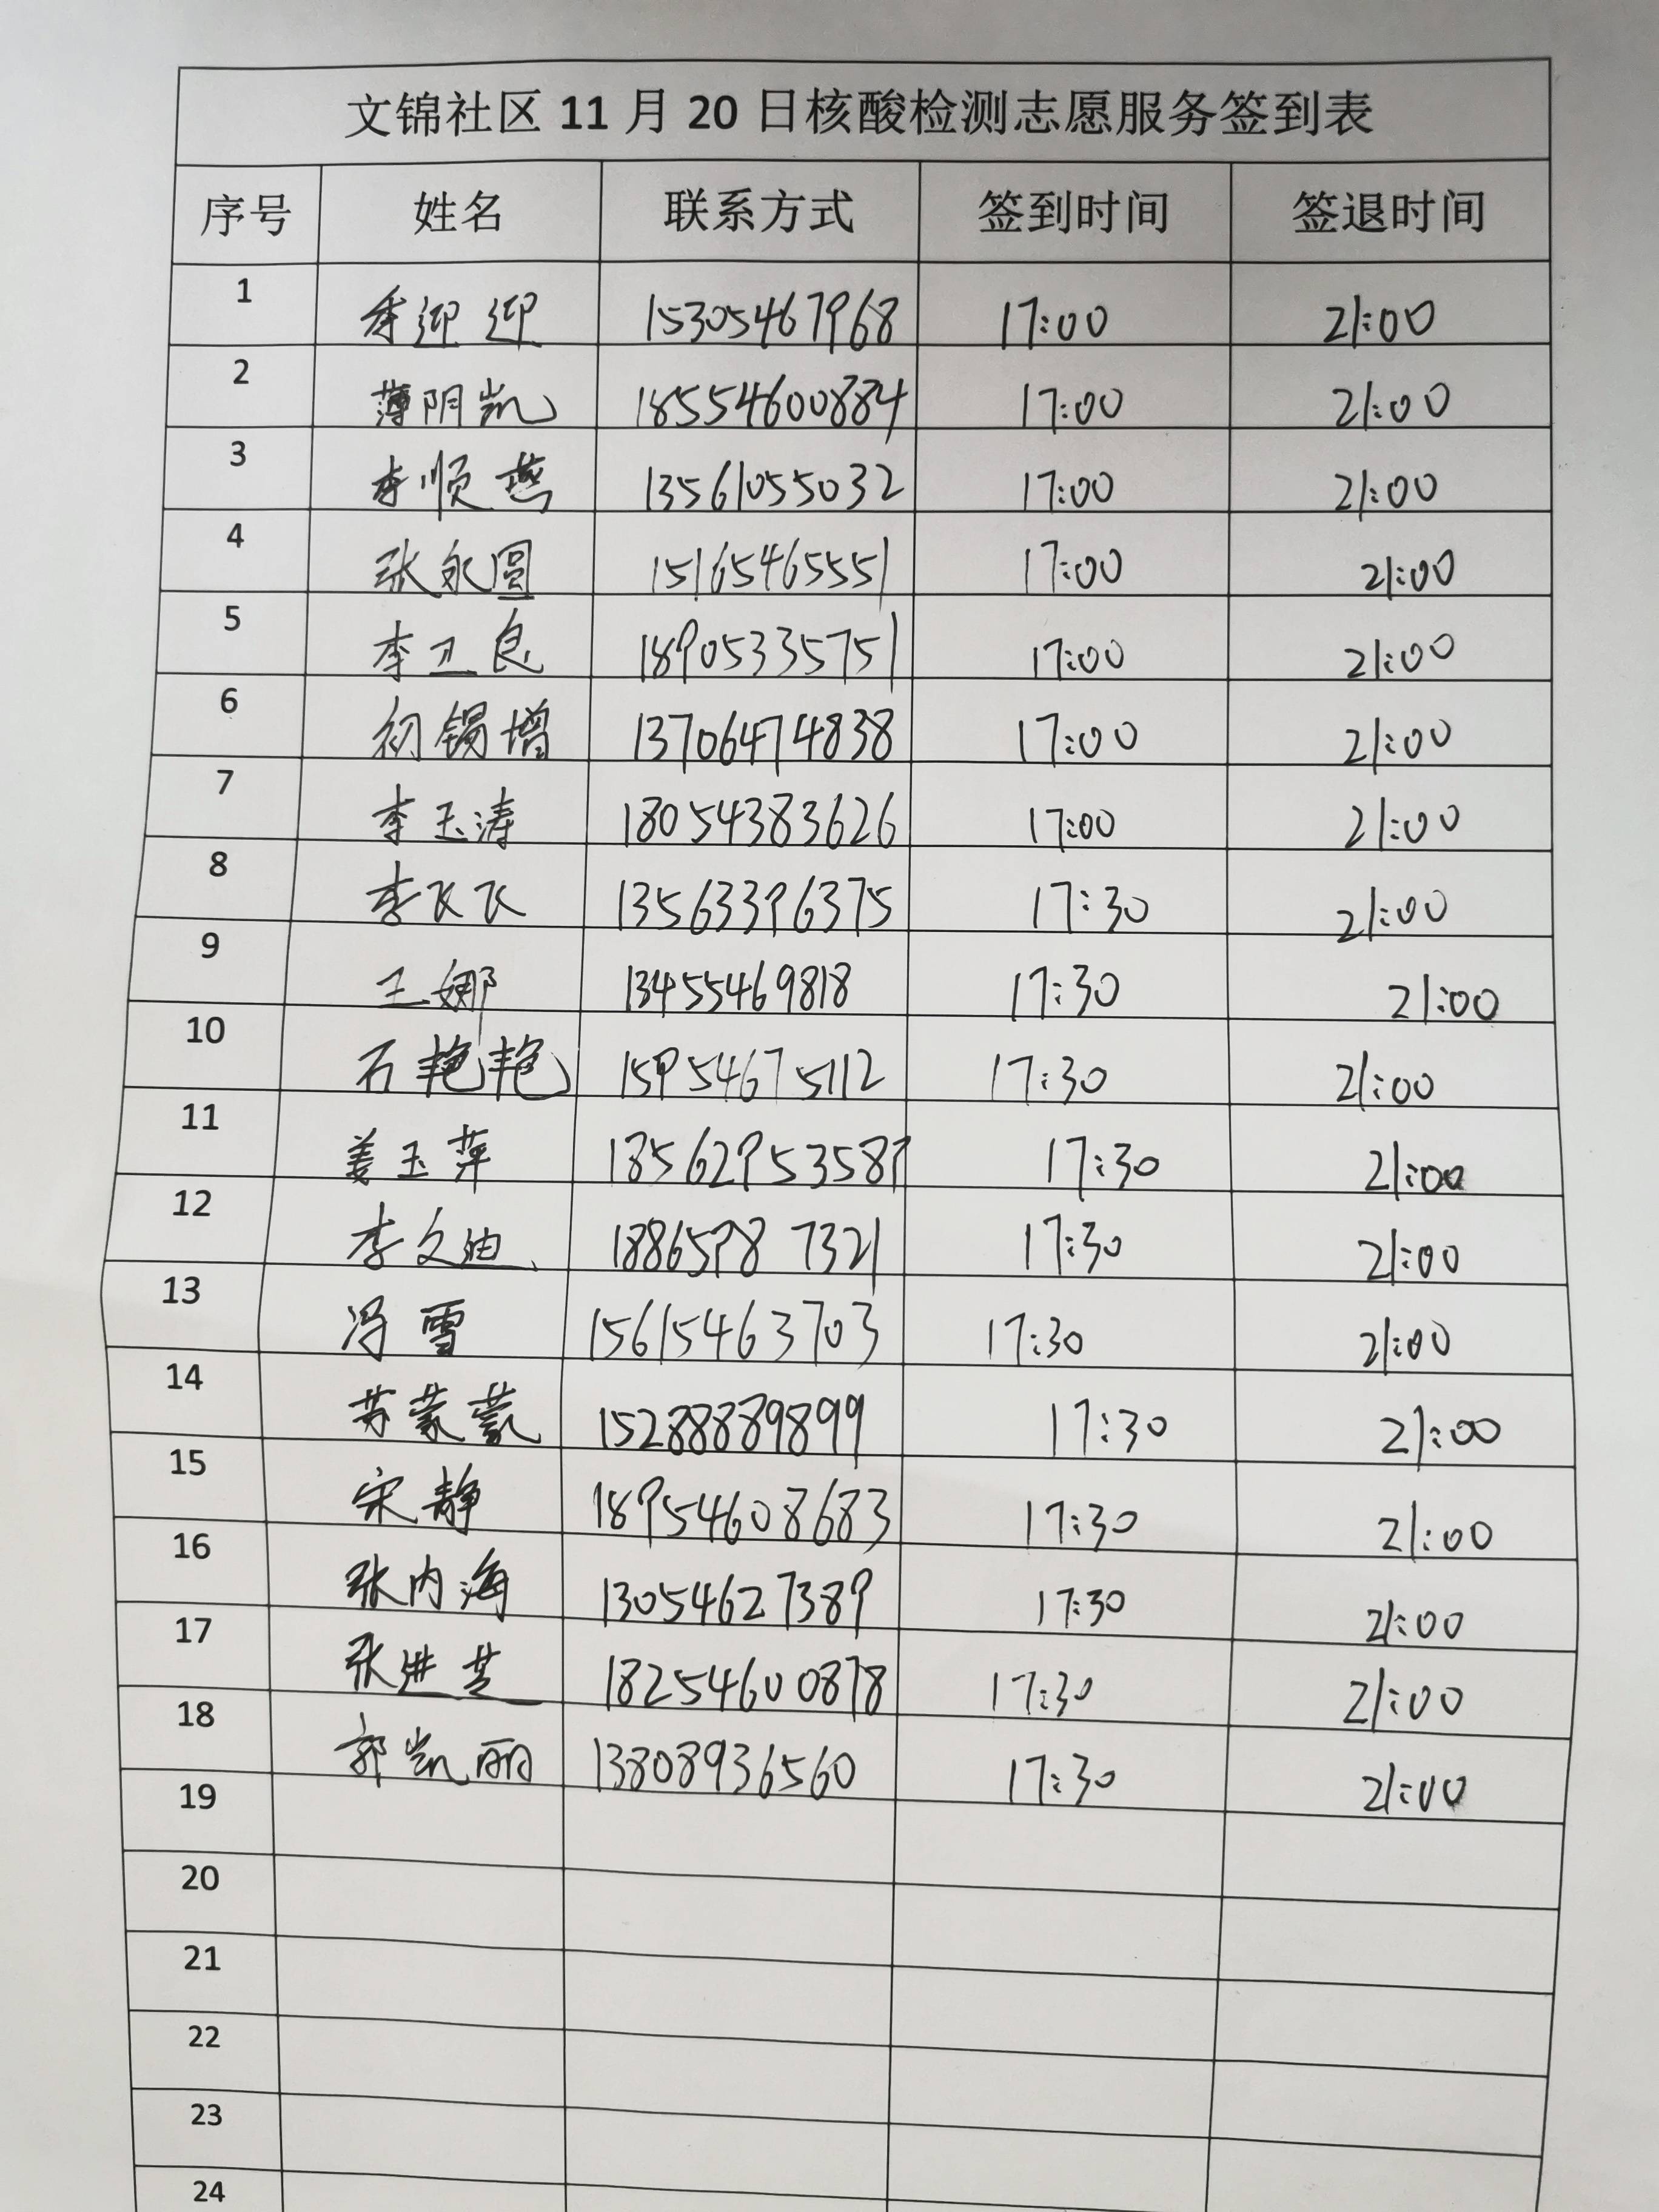 文锦社区 11 月 20 日核酸检测志愿服务签到表
序号 姓名 联系方式 签到时间 签退时间
1 季迎迎 15305467968 17:00 21:00
2 薄阴凯 18554600884 17:00 21:00
3 李顺燕 13561055032 17:00 21:00
4 张永圆 15165465551 17:00 21:00
5 李卫良 18905335751 17:00 21:00
6 初锡增 13706474838 17:00 21:00
7 李玉涛 18054383626 17:00 21:00
8 李飞飞 13563396375 17:30 21:00
9 王娜 13455469818 17:30 21:00
10 石艳艳 15954675112 17:30 21:00
11 姜玉萍 18562953589 17:30 21:00
12 李文迪 18865987321 17:30 21:00
13 冯雪 15615463703 17:30 21:00
14 苏蒙蒙 15288889899 17:30 21:00
15 宋静 18954608683 17:30 21:00
16 张内海 13054627389 17:30 21:00
17 张进芝 18254600878 17:30 21:00
18 郭凯丽 13808936560 17:30 21:00
19
20
21
22
23
24